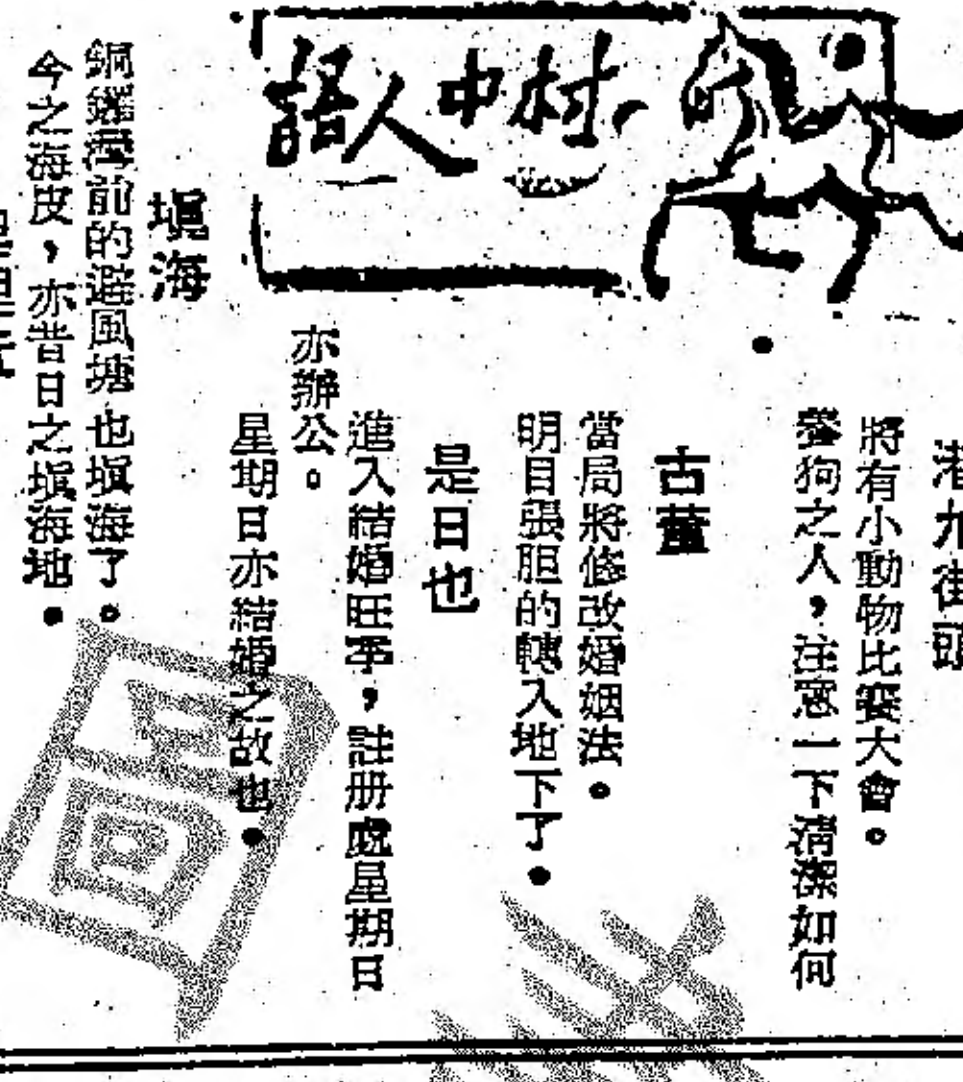 村中人語
港九街頭
將有小動物比賽大會。
養狗之人，注意一下清潔如何
古董
當局將修改婚姻法。
明目張胆的轉入地下了。
是日也
進入結婚旺季，註册處星期日
亦辦公。
星期日亦結婚之故也。
塡海
銅鑼灣前的避風塘也塡海了。
今之海皮，亦昔日之塡海地。
圖